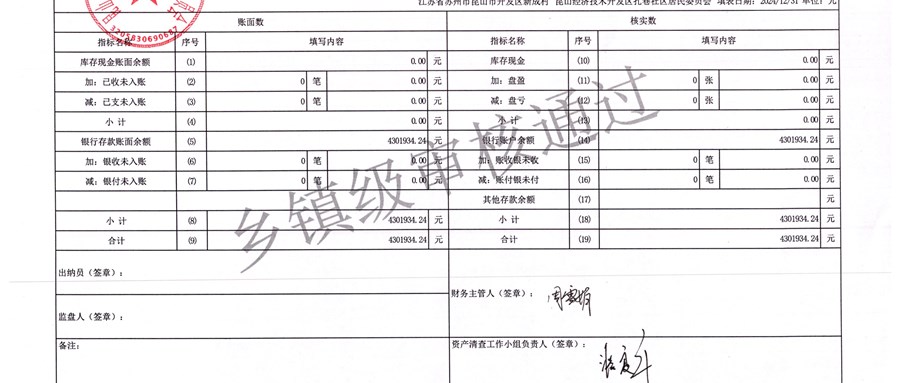 江苏省苏州市昆山市开发区新成村 昆山经济技术开发区孔巷社区居民委员会 填表日期: 2024/12/31 单位: 元
3205830690687
账面数 核实数
指标名称 序号 填写内容 指标名称 序号 填写内容
库存现金账面余额 (1) 0.00 元 库存现金 (10) 0.00 元
加: 已收未入账 (2) 0 笔 0.00 元 加: 盘盈 (11) 0 张 0.00 元
减: 已支未入账 (3) 0 笔 0.00 元 减: 盘亏 (12) 0 张 0.00 元
小 计 (4) 0.00 元 小 计 (13) 0.00 元
银行存款账面余额 (5) 4301934.24 元 银行账户余额 (14) 4301934.24 元
加: 银收未入账 (6) 0 笔 0.00 元 加: 账收银未收 (15) 0 笔 0.00 元
减: 银付未入账 (7) 0 笔 0.00 元 减: 账付银未付 (16) 0 笔 0.00 元
其他存款余额 (17) 元
小 计 (8) 4301934.24 元 小 计 (18) 4301934.24 元
合计 (9) 4301934.24 元 合计 (19) 4301934.24 元
乡镇级审核通过
出纳员（签章）:
财务主管人（签章）:
监盘人（签章）:
备注:
资产清查工作小组负责人（签章）: